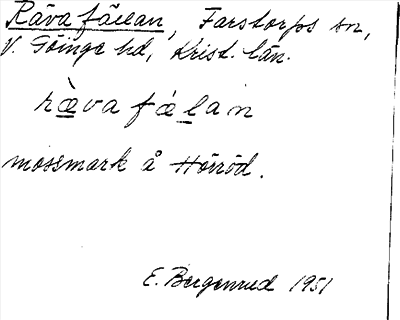 Rävafällan, Farstorps sn,
V. Göinge hd, Krist. län.
rævafælan
mossmark å Hörröd.
E. Bergenrud 1951